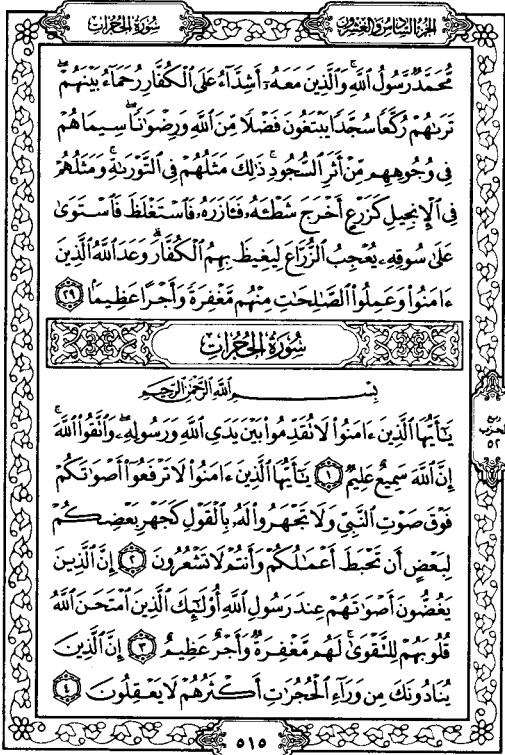 سُورَةُ الحُجُرَاتِ
الجُزْءُ السَّادِسُ وَالعِشْرُونَ
مُّحَمَّدٌ رَّسُولُ ٱللَّهِ ۚ وَٱلَّذِينَ مَعَهُۥٓ أَشِدَّآءُ عَلَى ٱلْكُفَّارِ رُحَمَآءُ بَيْنَهُمْ ۖ
تَرَىٰهُمْ رُكَّعًا سُجَّدًا يَبْتَغُونَ فَضْلًا مِّنَ ٱللَّهِ وَرِضْوَٰنًا ۖ سِيمَاهُمْ
فِى وُجُوهِهِم مِّنْ أَثَرِ ٱلسُّجُودِ ۚ ذَٰلِكَ مَثَلُهُمْ فِى ٱلتَّوْرَىٰةِ ۚ وَمَثَلُهُمْ
فِى ٱلْإِنجِيلِ كَزَرْعٍ أَخْرَجَ شَطْـَٔهُۥ فَـَٔازَرَهُۥ فَٱسْتَغْلَظَ فَٱسْتَوَىٰ
عَلَىٰ سُوقِهِۦ يُعْجِبُ ٱلزُّرَّاعَ لِيَغِيظَ بِهِمُ ٱلْكُفَّارَ ۗ وَعَدَ ٱللَّهُ ٱلَّذِينَ
ءَامَنُوا۟ وَعَمِلُوا۟ ٱلصَّٰلِحَٰتِ مِنْهُم مَّغْفِرَةً وَأَجْرًا عَظِيمًۢا ٢٩
سُورَةُ الحُجُرَاتِ
بِسْمِ ٱللَّهِ ٱلرَّحْمَٰنِ ٱلرَّحِيمِ
يَٰٓأَيُّهَا ٱلَّذِينَ ءَامَنُوا۟ لَا تُقَدِّمُوا۟ بَيْنَ يَدَىِ ٱللَّهِ وَرَسُولِهِۦ ۖ وَٱتَّقُوا۟ ٱللَّهَ ۚ
إِنَّ ٱللَّهَ سَمِيعٌ عَلِيمٌ ١ يَٰٓأَيُّهَا ٱلَّذِينَ ءَامَنُوا۟ لَا تَرْفَعُوٓا۟ أَصْوَٰتَكُمْ
فَوْقَ صَوْتِ ٱلنَّبِىِّ وَلَا تَجْهَرُوا۟ لَهُۥ بِٱلْقَوْلِ كَجَهْرِ بَعْضِكُمْ
لِبَعْضٍ أَن تَحْبَطَ أَعْمَٰلُكُمْ وَأَنتُمْ لَا تَشْعُرُونَ ٢ إِنَّ ٱلَّذِينَ
يَغُضُّونَ أَصْوَٰتَهُمْ عِندَ رَسُولِ ٱللَّهِ أُو۟لَٰٓئِكَ ٱلَّذِينَ ٱمْتَحَنَ ٱللَّهُ
قُلُوبَهُمْ لِلتَّقْوَىٰ ۚ لَهُم مَّغْفِرَةٌ وَأَجْرٌ عَظِيمٌ ٣ إِنَّ ٱلَّذِينَ
يُنَادُونَكَ مِن وَرَآءِ ٱلْحُجُرَٰتِ أَكْثَرُهُمْ لَا يَعْقِلُونَ ٤
ربع
الحزب
٥٢
٥١٥